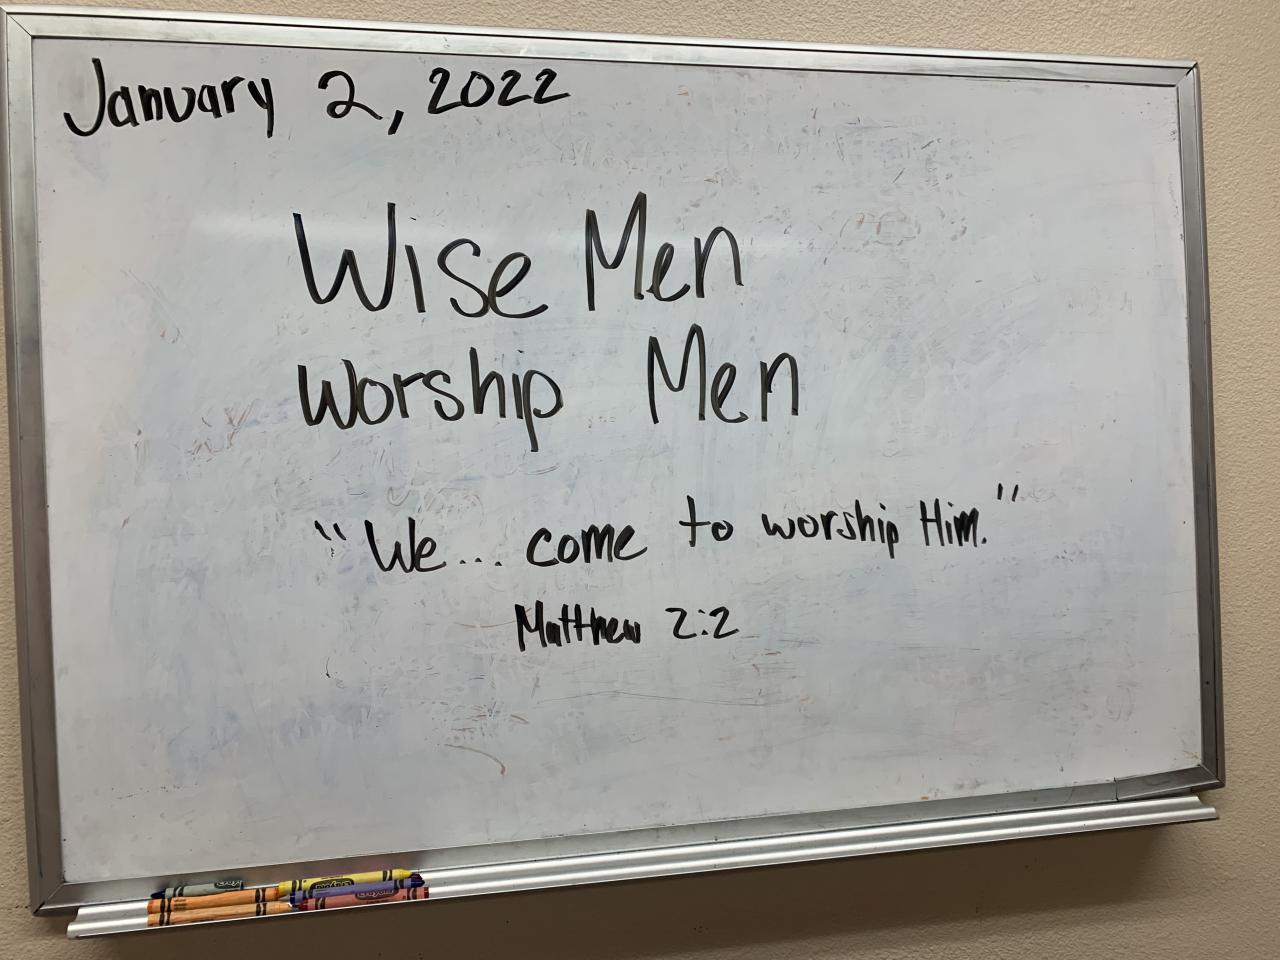 January 2, 2022
Wise Men
Worship Men
"We... come to worship Him."
Matthew 2:2
Crayola
Crayola